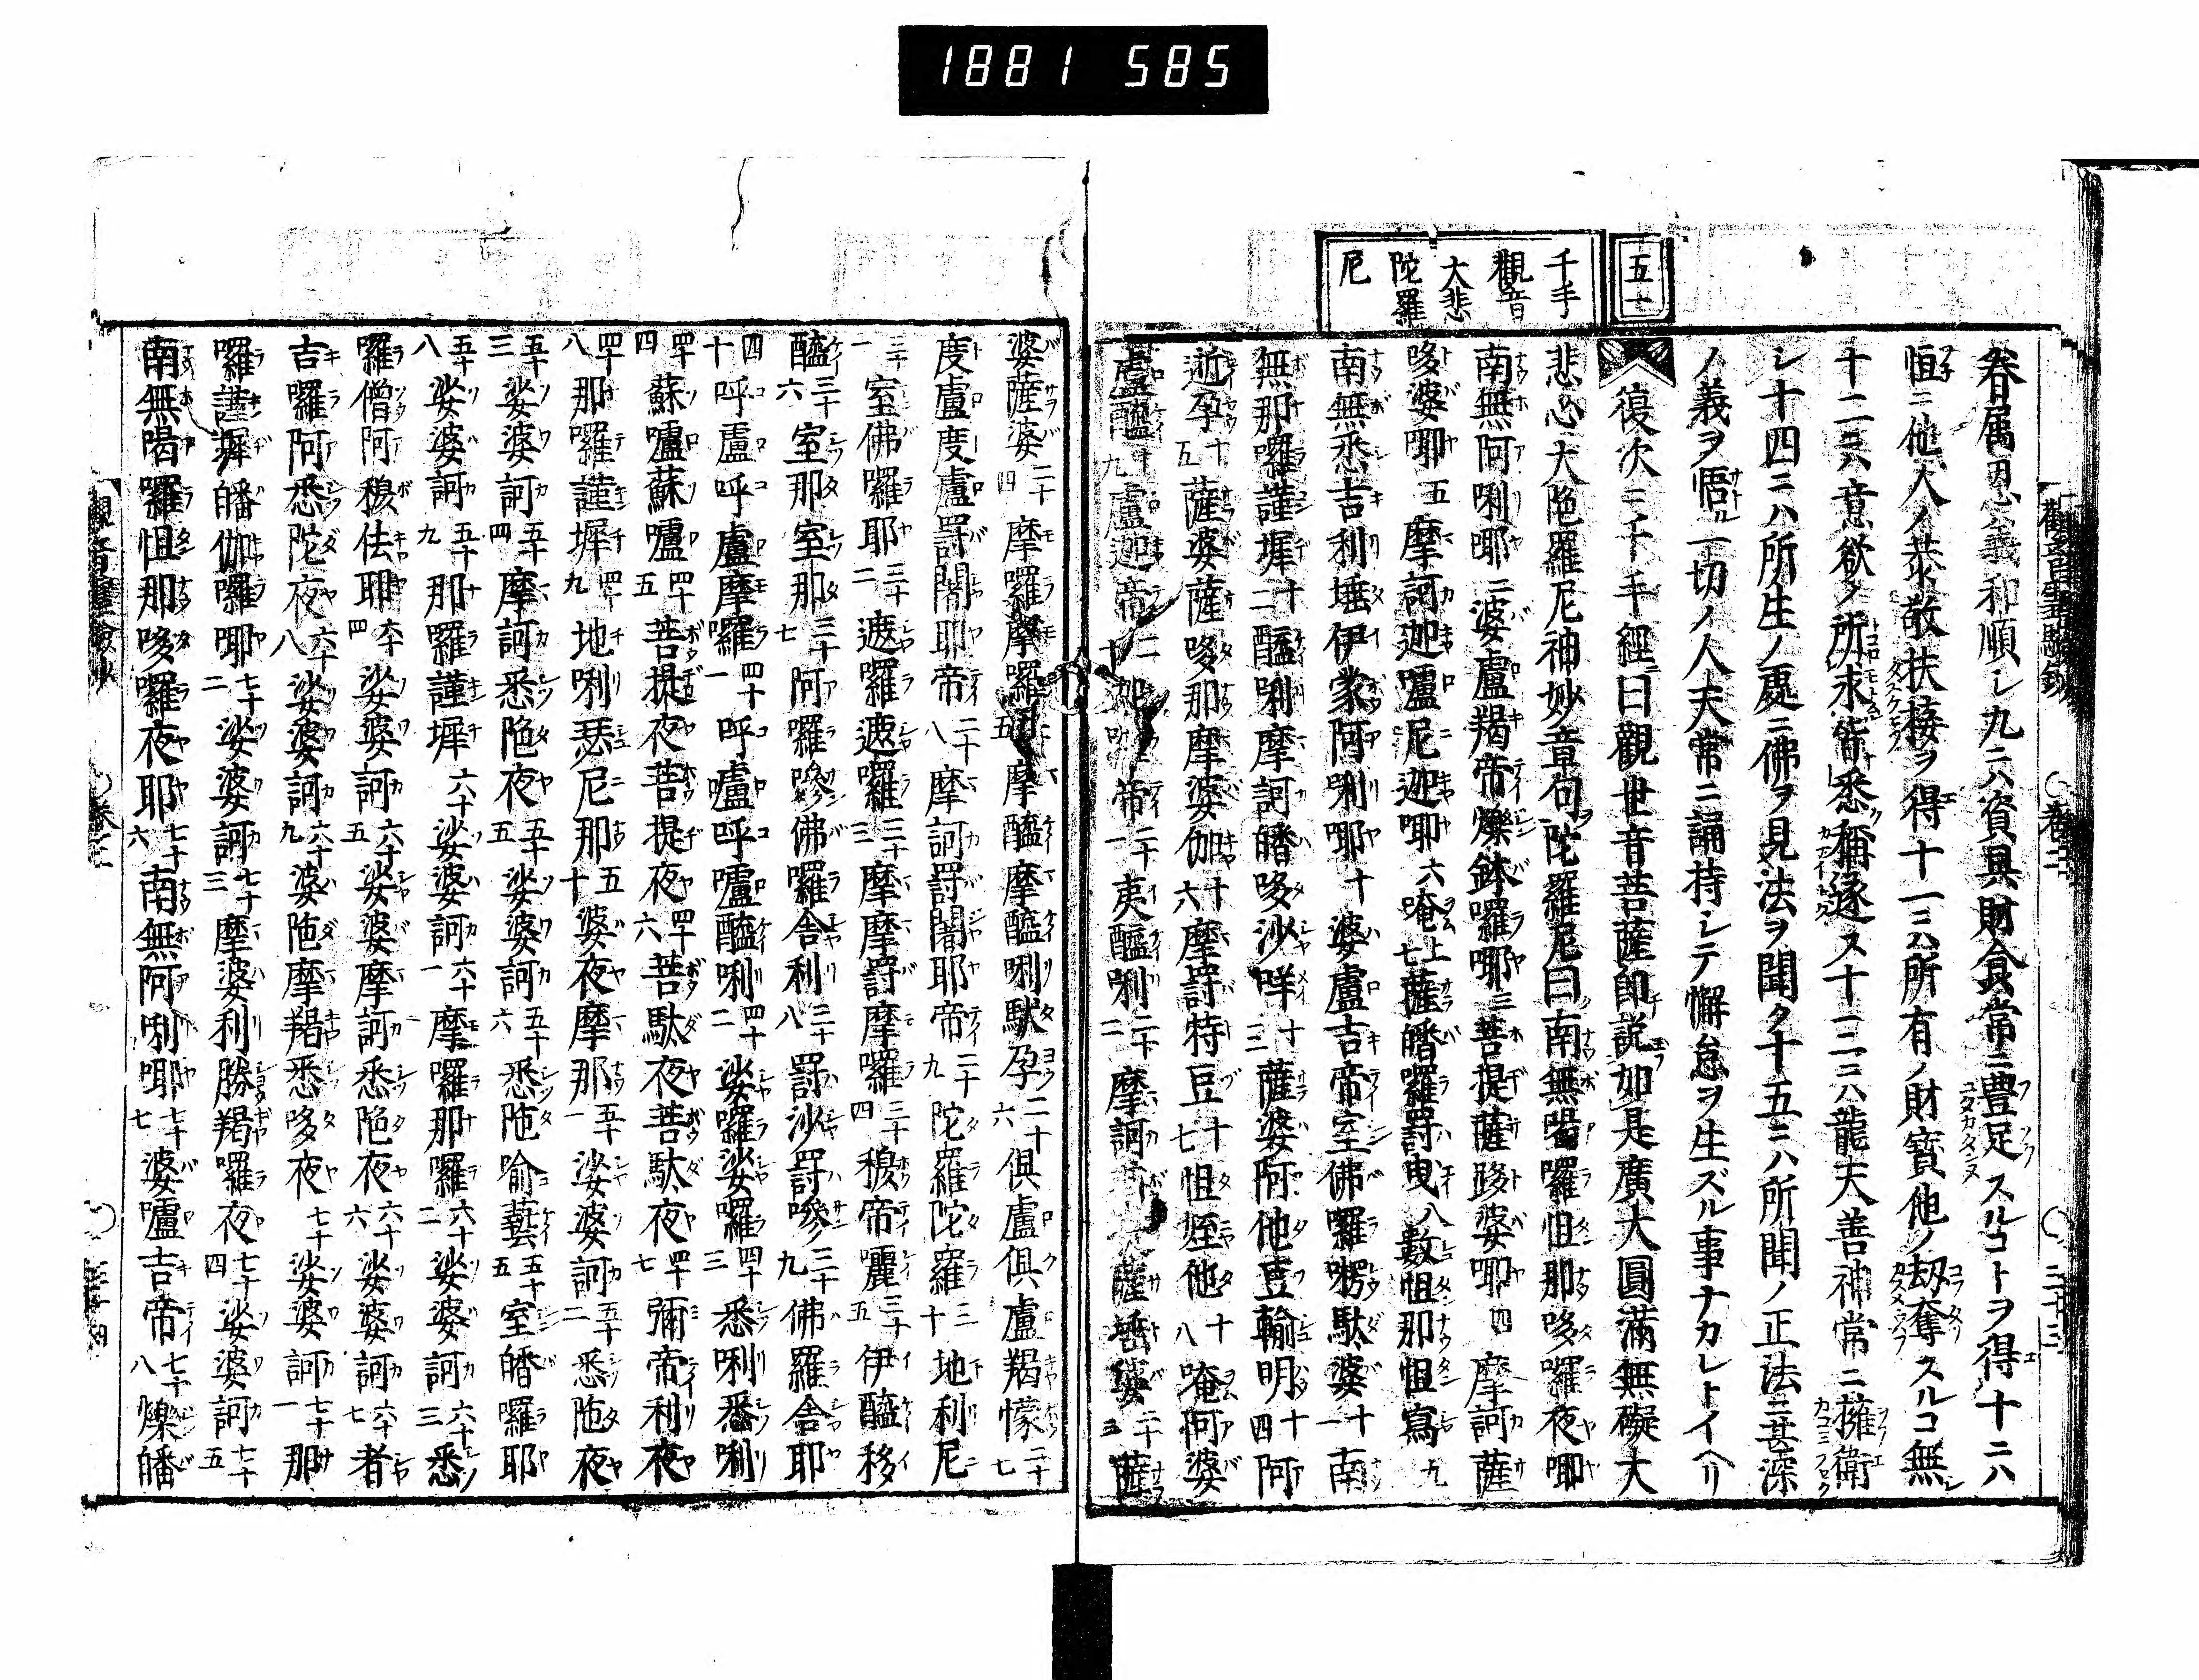 1881 585
五十一
千手
觀音
大悲
陀羅
尼
眷属恩義和順シ九ニハ資具財食常ニ豊足スルコトヲ得十ニハ
恒ニ他人ノ恭敬扶接ヲ得十一ニハ所有ノ財寶他ノ劫奪スルコ無
十二ニハ意欲ノ所求皆悉稱遂ス十三ニハ龍天善神常ニ擁衛
シ十四ニハ所生ノ處ニ佛ヲ見法ヲ聞ク十五ニハ所聞ノ正法ニ甚深
ノ義ヲ悟ル一切ノ人天常ニ誦持シテ懈怠ヲ生ズル事ナカレトイヘリ
復次ニ千手經ニ曰觀世音菩薩即説如是廣大圓滿無礙大
悲心大陁羅尼神妙章句陀羅尼曰南無喝囉怛那哆囉夜㖿
南無阿唎㖿二婆盧羯帝爍鉢囉㖿三菩提薩跢婆㖿四摩訶薩
哆婆㖿五摩訶迦嚧尼迦㖿六唵上七薩皤囉罸曳八數怛那怛寫九
南無悉吉利埵伊蒙阿唎耶十婆盧吉帝室佛囉㗚駄婆十一南
無那囉謹墀十二醯唎摩訶皤哆沙咩十三薩婆阿他豆輸朋十四阿
逝孕十五薩婆薩哆那摩婆伽十六摩罸特豆十七怛姪他十八唵阿婆
盧醯十九盧迦帝二十迦帝二十一夷醯唎二十二摩訶薩埵婆二十三薩
婆薩婆二十四摩囉摩囉二十五摩醯摩醯唎馱孕二十六俱盧俱盧羯懞二十七
度盧度盧罸闍耶帝二十八摩訶罸闍耶帝二十九陀羅陀羅三十地利尼
三十一室佛囉耶三十二遮囉遮囉三十三摩摩罸摩囉三十四穆帝囇三十五伊醯移
醯三十六室那室那三十七阿囉嘇佛囉舎利三十八罸沙罸嘇三十九佛羅舎耶
四十呼盧呼盧摩囉四十一呼嚧呼嚧醯唎四十二娑囉娑囉四十三悉唎悉唎
四十四蘇嚧蘇嚧四十五菩提夜菩提夜四十六菩駄夜菩駄夜四十七彌帝利夜
四十八那囉謹墀四十九地唎瑟尼那五十婆夜摩那五十一娑婆訶五十二悉陁夜
五十三娑婆訶五十四摩訶悉陁夜五十五娑婆訶五十六悉陁喻藝五十五室皤囉耶
五十八娑婆訶五十九那囉謹墀六十娑婆訶六十一摩囉那囉六十二娑婆訶六十三悉
囉僧阿穆佉耶六十四娑婆訶六十五娑婆摩訶悉陁夜六十六娑婆訶六十七者
吉囉阿悉陀夜六十八娑婆訶六十九婆陁摩羯悉哆夜七十娑婆訶七十一那
囉謹墀皤伽囉㖿七十二娑婆訶七十三摩婆利勝羯囉夜七十四娑婆訶七十五
南無喝囉怛那哆囉夜耶七十六南無阿唎㖿七十七婆嚧吉帝七十八爍皤